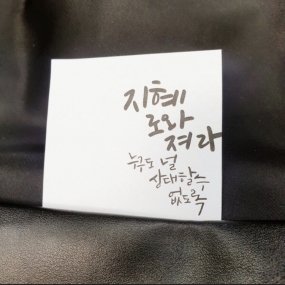 지혜
로와
져라
누구도 널
상대할 수
없도록